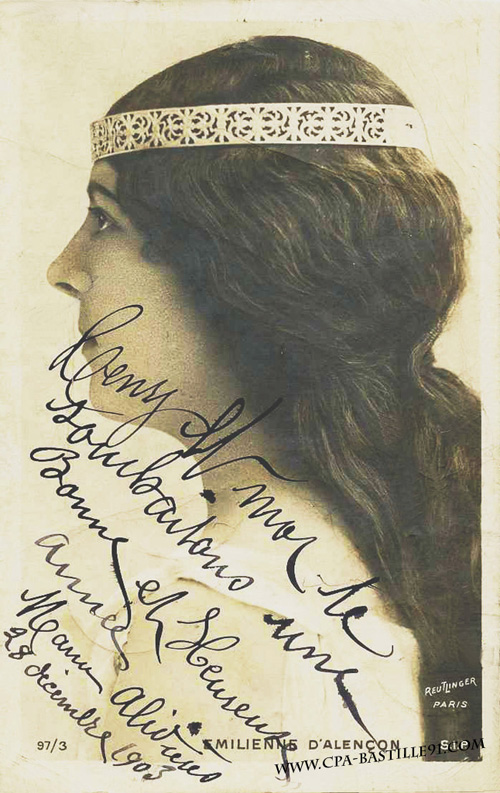 et moi te
souhaitons une
Bonne et Heureuse
année
28 décembre 1903
REUTLINGER
PARIS
97/3
EMILIENNE D'ALENÇON
S.I.P.
WWW.CPA-BASTILLE91.COM